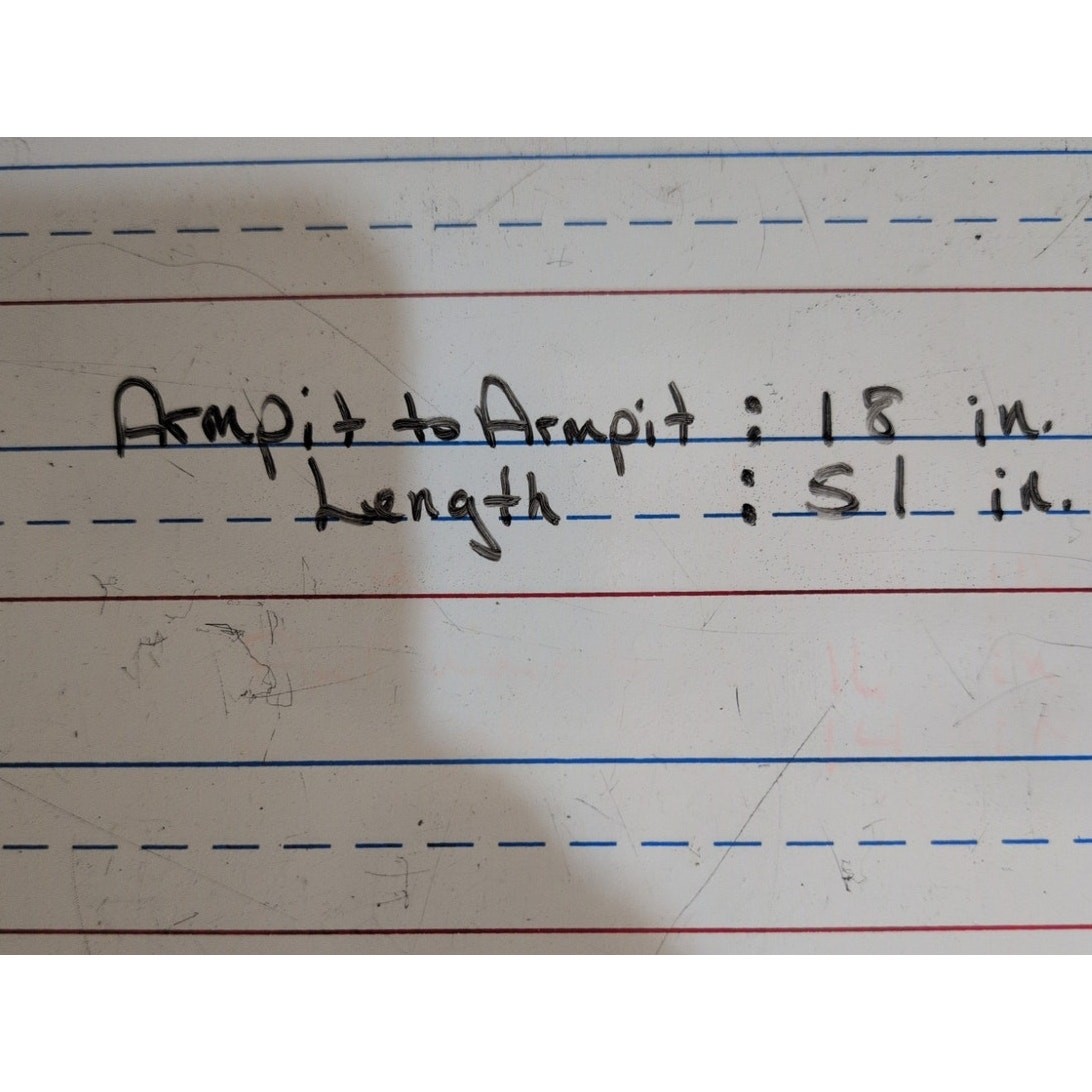 Armpit to Armpit : 18 in.
Length : 51 in.